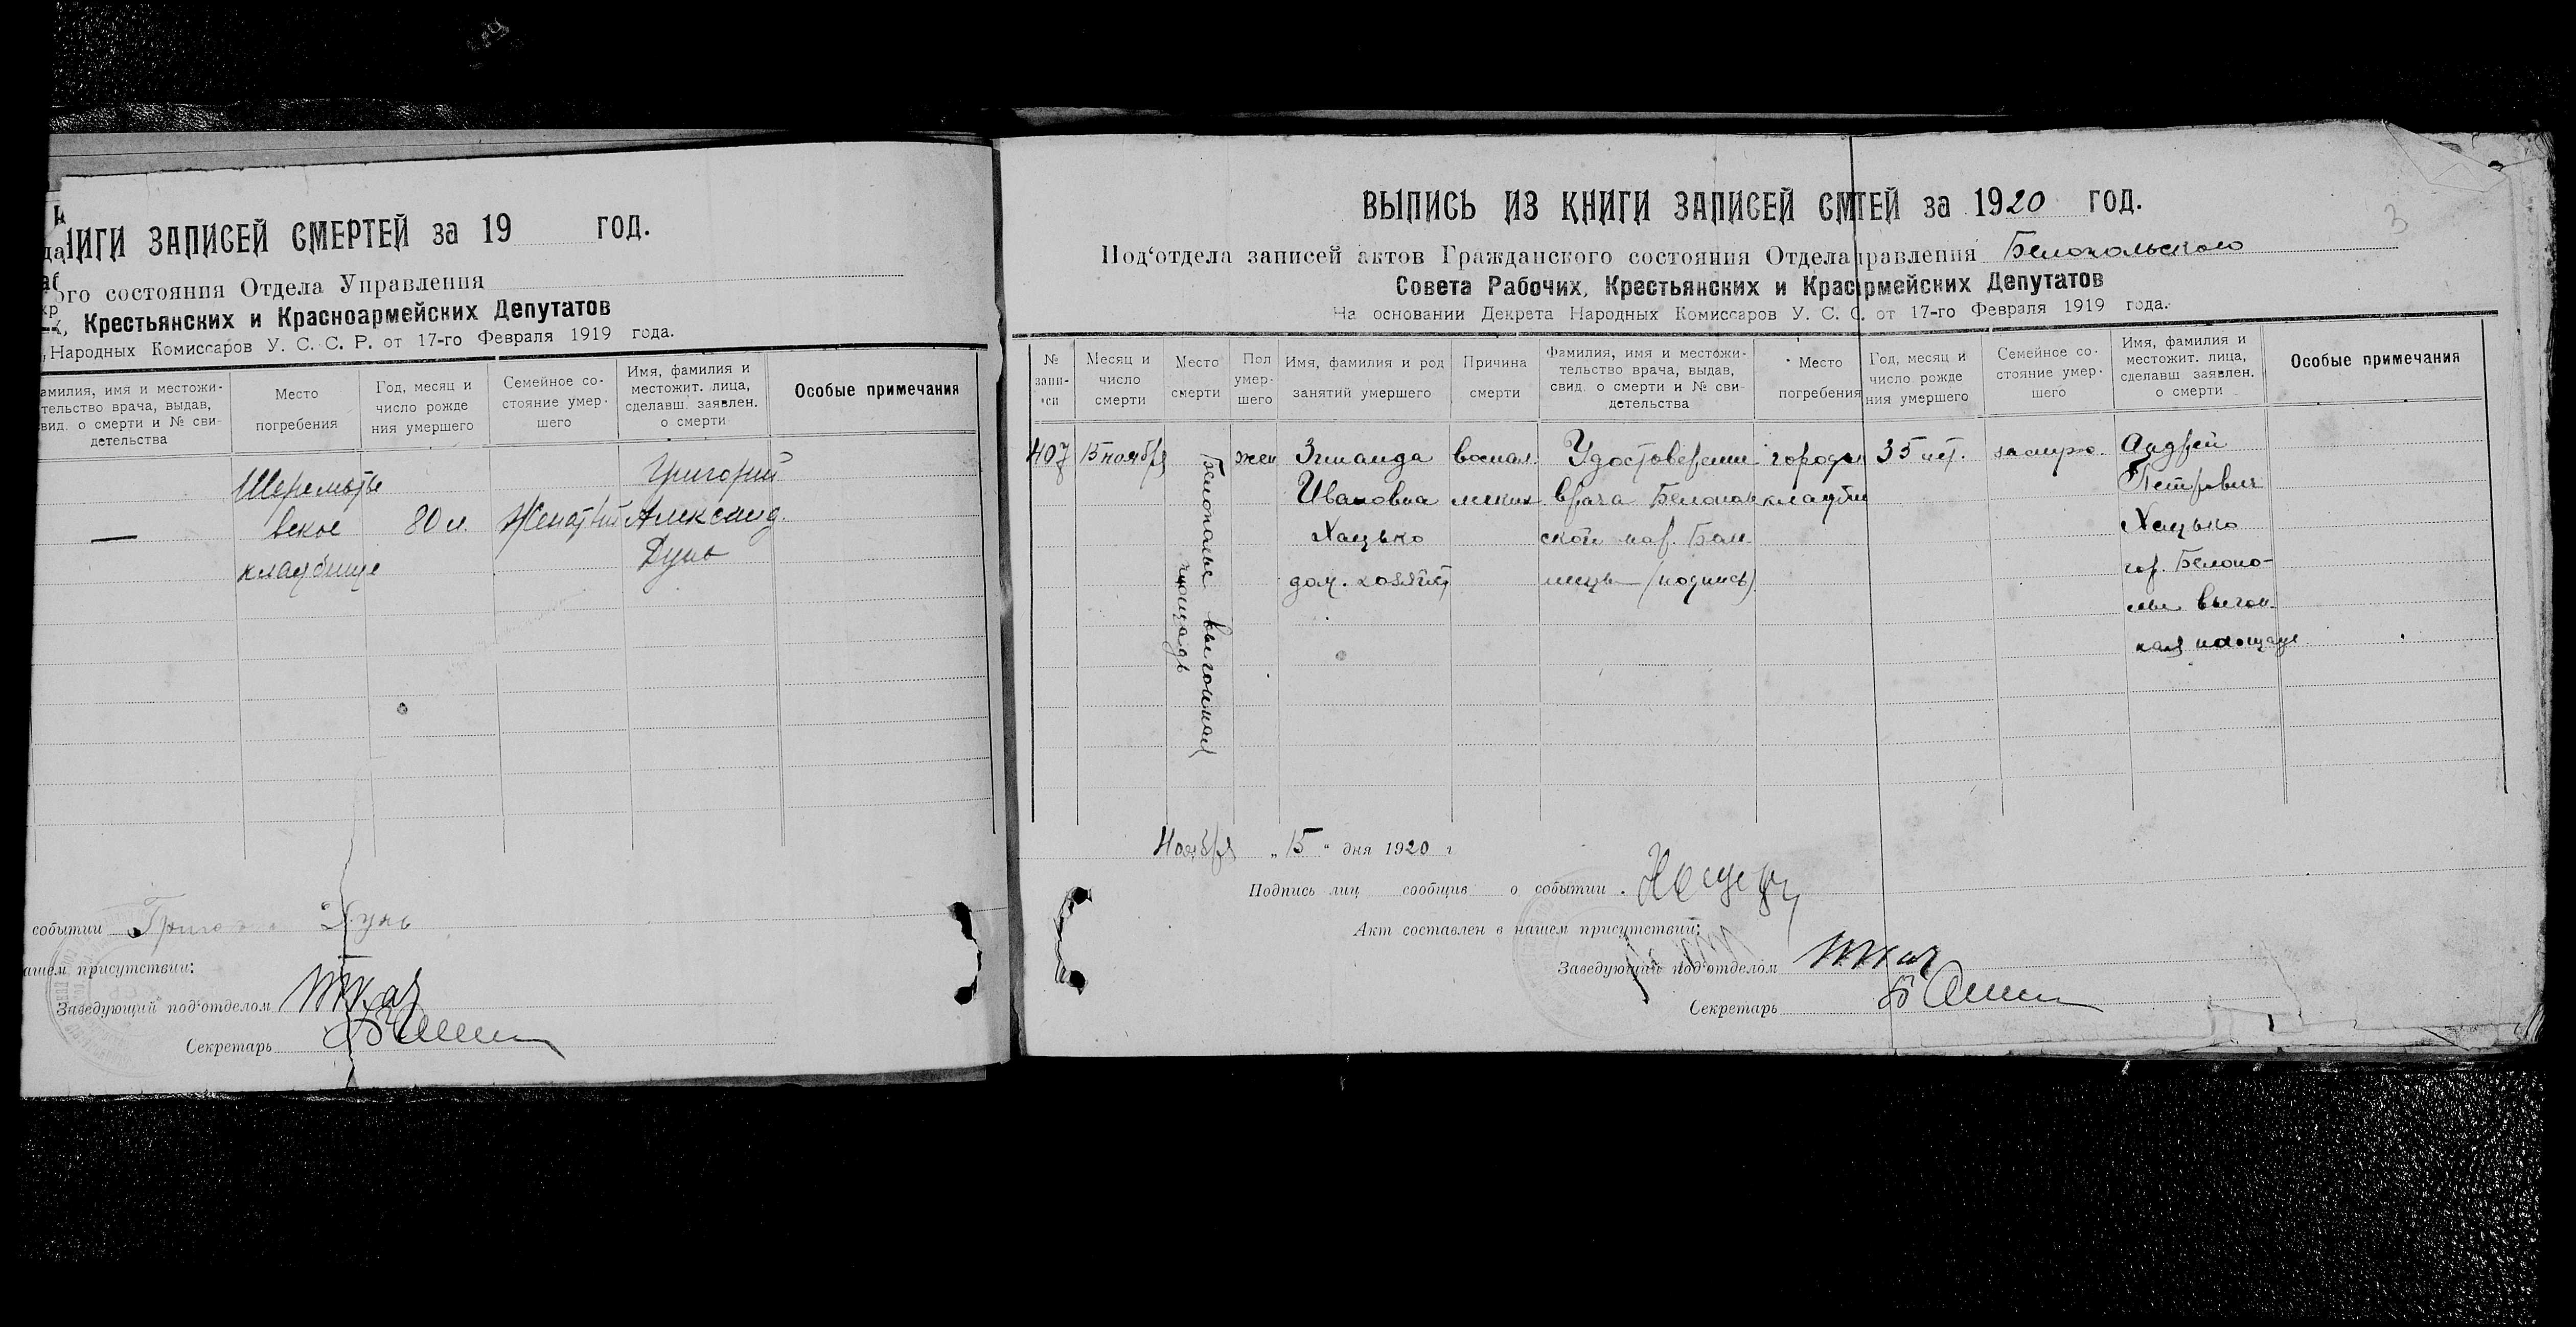 ИГИ ЗАПИСЕЙ СМЕРТЕЙ за 19 год.
ого состояния Отдела Управления
Крестьянских и Красноармейских Депутатов
Народных Комиссаров У. С. С. Р. от 17-го Февраля 1919 года.
амилия, имя и местожи-
тельство врача, выдав,
вид. о смерти и № сви-
детельства
Место
погребения
Год, месяц и
число рожде
ния умершего
Семейное со-
стояние умер-
шего
Имя, фамилия и
местожит. лица,
сделавш. заявлен.
о смерти
Особые примечания
Григорий
Шереметь
— вское 80 л. Женатый Александ.
Дунь
кладбище
событии Григо Дунь
ашем присутствии:
Заведующий под‘отделом Ткач
Секретарь
ВЫПИСЬ ИЗ КНИГИ ЗАПИСЕЙ СМТЕЙ за 1920 год.
3
Под‘отдела записей актов Гражданского состояния Отдела правления Белопольского
Совета Рабочих, Крестьянских и Красрмейских Депутатов
На основании Декрета Народных Комиссаров У. С. С. от 17-го Февраля 1919 года.
№
запи-
си
Месяц и
число
смерти
Место
смерти
Пол
умер-
шего
Имя, фамилия и род
занятий умершего
Причина
смерти
Фамилия, имя и местожи-
тельство врача, выдав,
свид. о смерти и № сви-
детельства
Место
погребения
Год, месяц и
число рожде
ния умершего
Семейное со-
стояние умер-
шего
Имя, фамилия и
местожит. лица,
сделавш заявлен.
о смерти
Особые примечания
407 15 ноября жен Зинаида воспал. Удостоверени городск 35 лет. замуж. Андрей
Ивановна легких врача Белополь кладби Петрович
Хацько ской гор. Бол Хацько
дом. хозяйст ницы (подпись) гор. Белопо-
лье выгон
ная площадь
Белополье выгонная
площадь
Ноября „ 15 “ дня 1920 г
Подпись лиц сообщив о событии
Акт составлен в нашем присутствии:
Заведующий под‘отделом Ткач
Секретарь